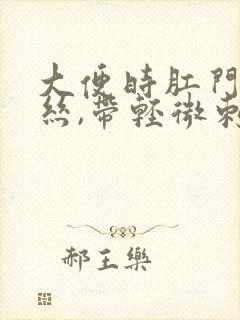 大便時肛門
絲,帶輕微刺
郝王樂